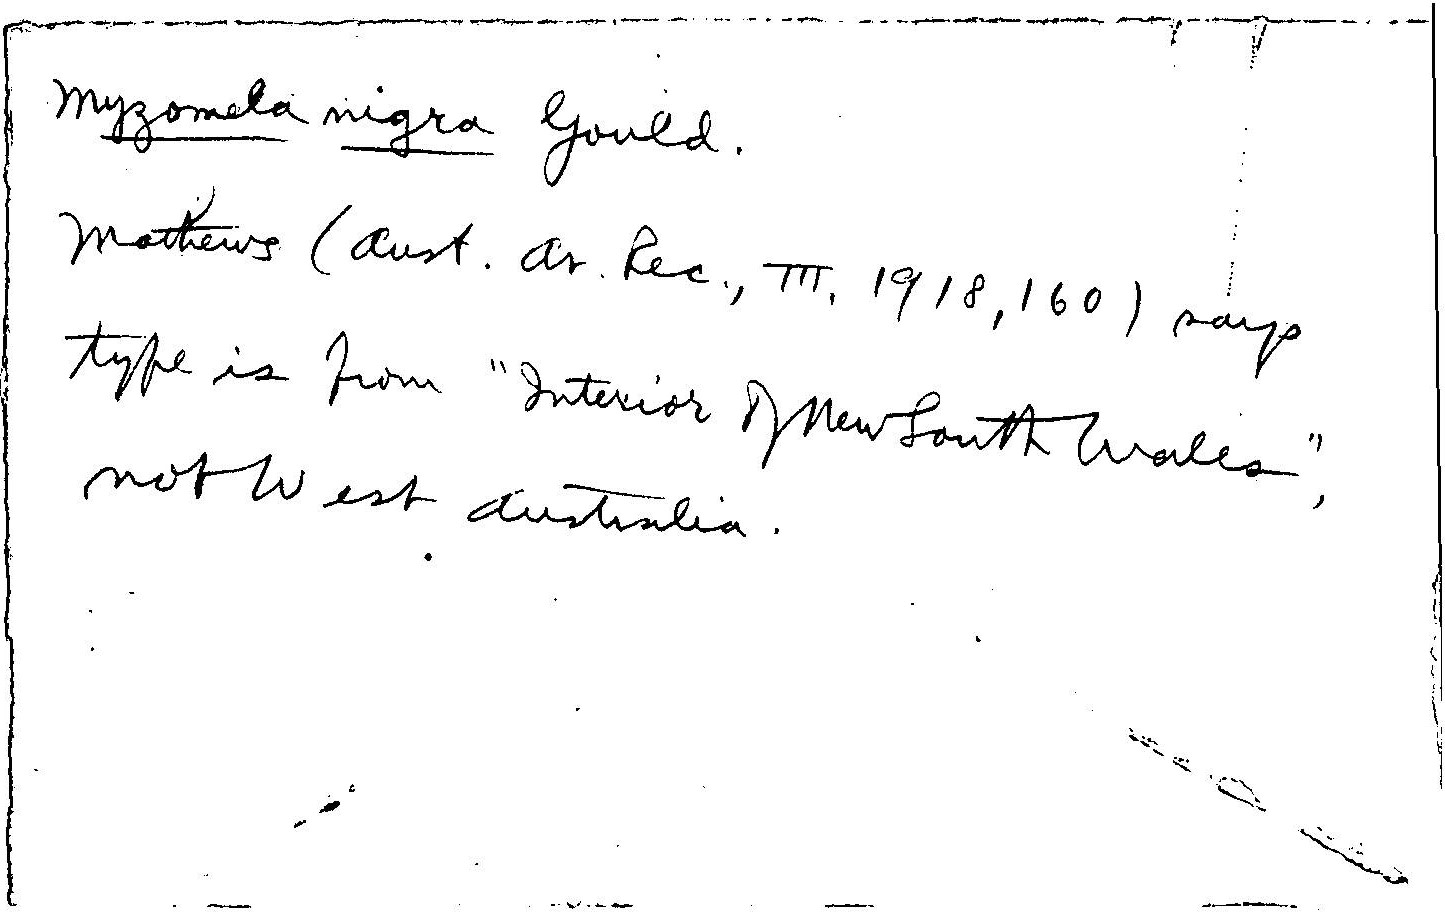 Myzomela nigra Gould.
Mathews (Aust. Av. Rec., III, 1918, 160) says
type is from "Interior of New South Wales",
not West Australia.